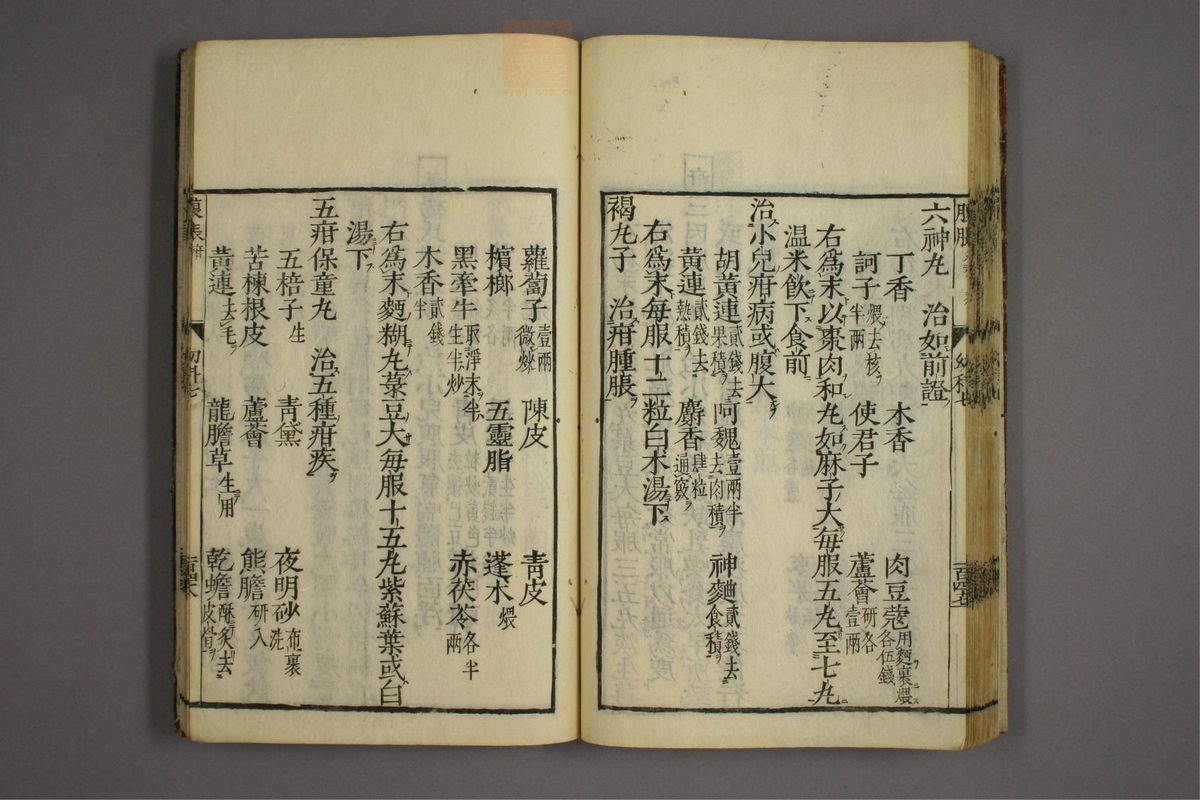 六神丸　治如前證
丁香　木香　肉豆蔲用麵裹煨各伍錢
訶子煨去核半兩　使君子　蘆薈研各壹兩
右爲末以棗肉和丸如麻子大每服五丸至七丸
溫米飲下食前
治小兒疳病或腹大
胡黃連貳錢去果積　阿魏壹兩半去肉積　神麯貳錢去食積
黃連貳錢去熱積　麝香肆粒通竅
右爲末每服十二粒白术湯下
褐丸子　治疳腫脹
蘿蔔子壹兩微炒　陳皮　靑皮
檳榔　五靈脂　蓬朮煨
黑牽牛取淨末半生半炒　赤茯苓各半兩
木香貳錢半
右爲末麵糊丸菉豆大每服十五丸紫蘇葉或白
湯下
五疳保童丸　治五種疳疾
五棓子生　靑黛　夜明砂布裹洗
苦楝根皮　蘆薈　熊膽研入
黃連去毛　龍膽草生用　乾蟾酥炙去皮骨
幼科七